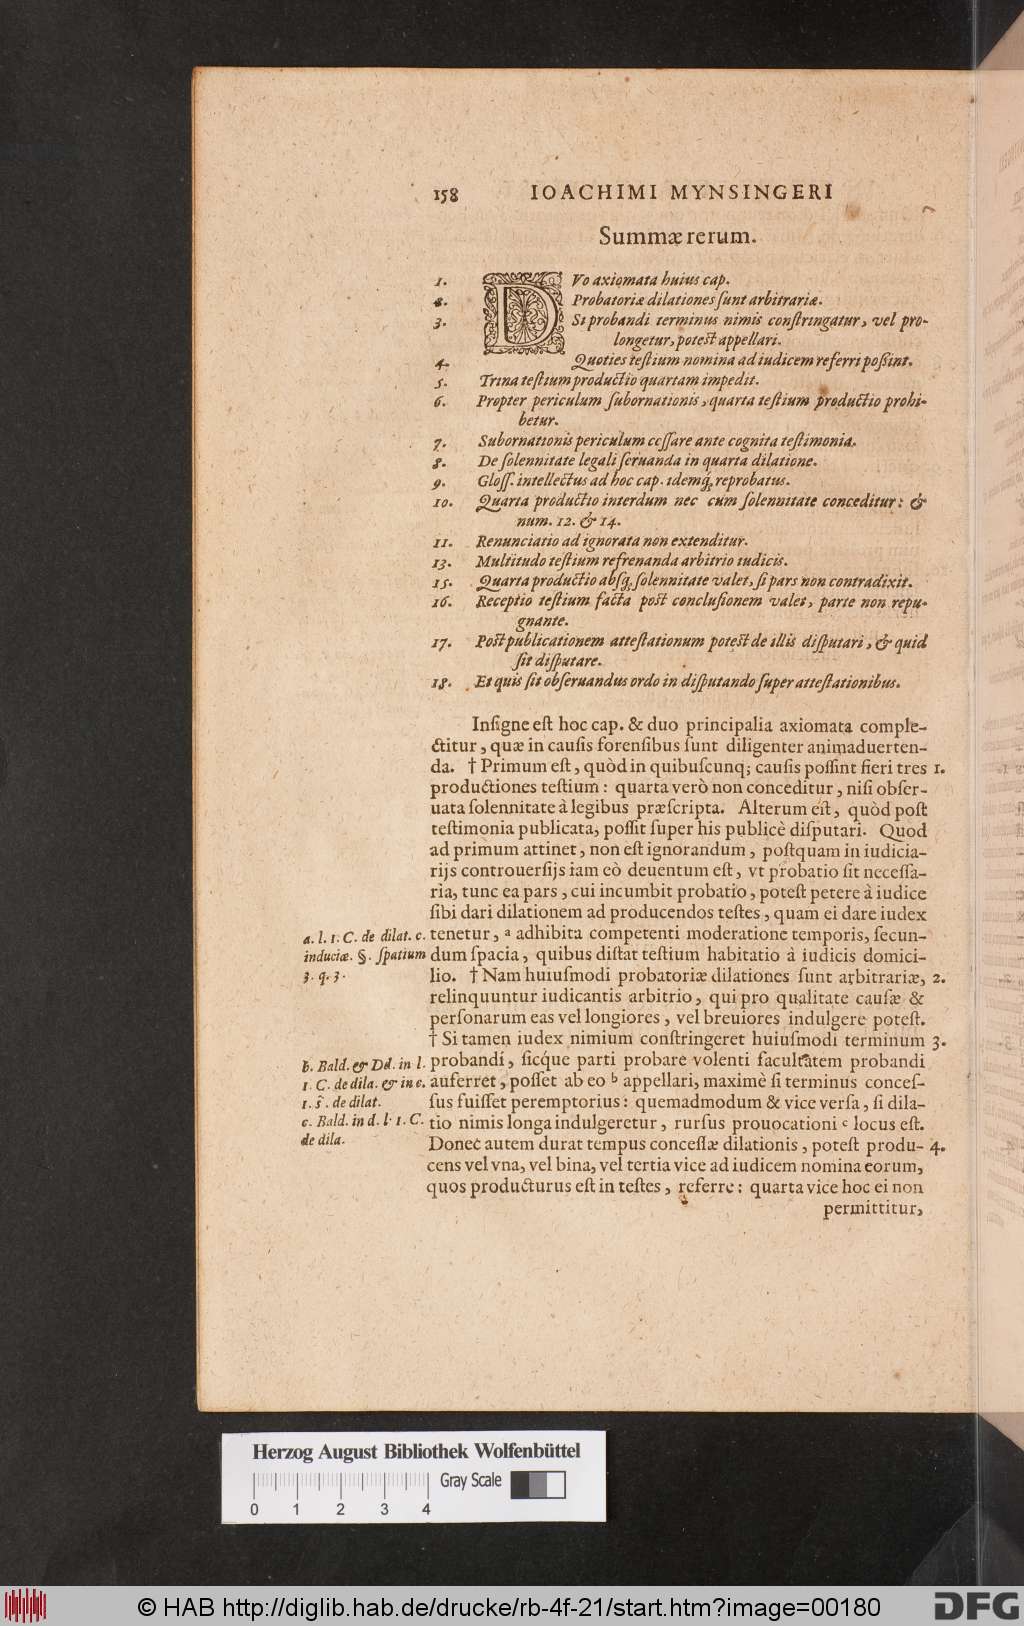 158 IOACHIMI MYNSINGERI
Summæ rerum.
1. DVo axiomata huius cap.
2. Probatoriæ dilationes ſunt arbitrariæ.
3. Si probandi terminus nimis conſtringatur, vel pro-
longetur, poteſt appellari.
4. Quoties teſtium nomina ad iudicem referri poßint.
5. Trina teſtium productio quartam impedit.
6. Propter periculum ſubornationis, quarta teſtium productio prohi-
betur.
7. Subornationis periculum ceſſare ante cognita teſtimonia.
8. De ſolennitate legali ſeruanda in quarta dilatione.
9. Gloſſ. intellectus ad hoc cap. idemq́; reprobatus.
10. Quarta productio interdum nec cum ſolennitate conceditur: &
num. 12. & 14.
11. Renunciatio ad ignorata non extenditur.
13. Multitudo teſtium refrenanda arbitrio iudicis.
15. Quarta productio abſq́; ſolennitate valet, ſi pars non contradixit.
16. Receptio teſtium facta poſt concluſionem valet, parte non repu-
gnante.
17. Poſt publicationem atteſtationum poteſt de illis diſputari, & quid
ſit diſputare.
18. Et quis ſit obſeruandus ordo in diſputando ſuper atteſtationibus.
Inſigne eſt hoc cap. & duo principalia axiomata comple-
ctitur, quæ in cauſis forenſibus ſunt diligenter animaduerten-
da. † Primum eſt, quòd in quibuſcunq; cauſis poſſint fieri tres 1.
productiones teſtium: quarta verò non conceditur, niſi obſer-
uata ſolennitate à legibus præſcripta. Alterum eſt, quòd poſt
teſtimonia publicata, poſſit ſuper his publicè diſputari. Quod
ad primum attinet, non eſt ignorandum, poſtquam in iudicia-
rijs controuerſijs iam eò deuentum eſt, vt probatio ſit neceſſa-
ria, tunc ea pars, cui incumbit probatio, poteſt petere à iudice
ſibi dari dilationem ad producendos teſtes, quam ei dare iudex
a. l. 1. C. de dilat. c. tenetur, ᵃ adhibita competenti moderatione temporis, ſecun-
induciæ. §. ſpatium dum ſpacia, quibus diſtat teſtium habitatio à iudicis domici-
3. q. 3. lio. † Nam huiuſmodi probatoriæ dilationes ſunt arbitrariæ, 2.
relinquuntur iudicantis arbitrio, qui pro qualitate cauſæ &
perſonarum eas vel longiores, vel breuiores indulgere poteſt.
† Si tamen iudex nimium conſtringeret huiuſmodi terminum 3.
b. Bald. & Dd. in l. probandi, ſicq́ue parti probare volenti facultatem probandi
1. C. de dila. & in c. auferret, poſſet ab eo ᵇ appellari, maximè ſi terminus conceſ-
1. s̄. de dilat. ſus fuiſſet peremptorius: quemadmodum & vice verſa, ſi dila-
c. Bald. in d. l. 1. C. tio nimis longa indulgeretur, rurſus prouocationi ᶜ locus eſt.
de dila. Donec autem durat tempus conceſſæ dilationis, poteſt produ- 4.
cens vel vna, vel bina, vel tertia vice ad iudicem nomina eorum,
quos producturus eſt in teſtes, referre: quarta vice hoc ei non
permittitur,
Herzog August Bibliothek Wolfenbüttel
0 1 2 3 4 Gray Scale
© HAB http://diglib.hab.de/drucke/rb-4f-21/start.htm?image=00180 DFG